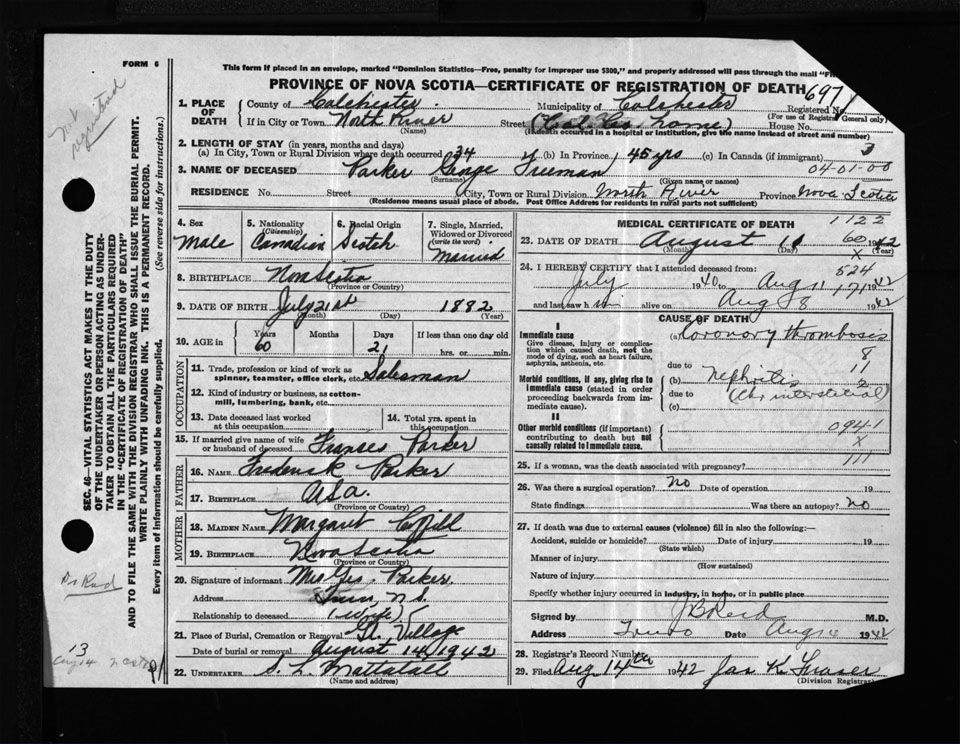 FORM 6
This form if placed in an envelope, marked "Dominion Statistics—Free, penalty for improper use $300," and properly addressed will pass through the mail
PROVINCE OF NOVA SCOTIA—CERTIFICATE OF REGISTRATION OF DEATH
697
1. PLACE OF DEATH
County of Colchester Municipality of Colchester Registered No.
(For use of Registrar General only)
If in City or Town North River Street (Col Co. Home) House No.
(Name) (If death occurred in a hospital or institution, give the name instead of street and number)
2. LENGTH OF STAY (in years, months and days)
(a) In City, Town or Rural Division where death occurred 34 (b) In Province 45 yrs (c) In Canada (if immigrant) 3
04-01-00
3. NAME OF DECEASED Parker George Freeman
(Surname) (Given name or names)
RESIDENCE No. Street City, Town or Rural Division North River Province Nova Scotia
(Residence means usual place of abode. Post Office Address for residents in rural parts not sufficient)
4. Sex Male
5. Nationality (Citizenship) Canadian
6. Racial Origin Scotch
7. Single, Married, Widowed or Divorced (write the word) Married
8. BIRTHPLACE Nova Scotia
(Province or Country)
9. DATE OF BIRTH July 21st 1882
(Month) (Day) (Year)
10. AGE in Years 60 Months Days 21 If less than one day old
hrs. or min.
OCCUPATION
11. Trade, profession or kind of work as spinner, teamster, office clerk, etc. Salesman
12. Kind of industry or business, as cotton-mill, lumbering, bank, etc.
13. Date deceased last worked at this occupation
14. Total yrs. spent in this occupation
15. If married give name of wife or husband of deceased Frances Parker
FATHER
16. NAME Frederick Parker
17. BIRTHPLACE USA.
(Province or Country)
MOTHER
18. MAIDEN NAME Margaret
19. BIRTHPLACE Nova Scotia
(Province or Country)
20. Signature of informant Mrs Geo. Parker.
Address Truro, N.S.
Relationship to deceased (Wife)
21. Place of Burial, Cremation or Removal Village
Date of burial or removal August 14 1942
22. UNDERTAKER S. L. Mattatall
(Name and address)
MEDICAL CERTIFICATE OF DEATH
1122
60
x
23. DATE OF DEATH August 11 1942
(Month) (Day) (Year)
24. I HEREBY CERTIFY that I attended deceased from:
524
July 1940 to Aug 11 1942
171
and last saw him alive on Aug 8 1942
CAUSE OF DEATH
I
Immediate cause
Give disease, injury or complication which caused death, not the mode of dying, such as heart failure, asphyxia, asthenia, etc.
(a) Coronary thrombosis
due to
8
11
2
Morbid conditions, if any, giving rise to immediate cause (stated in order proceeding backwards from immediate cause).
(b) Nephritis
due to (Chr interstitial)
(c)
II
Other morbid conditions (if important) contributing to death but not causally related to immediate cause.
0941
x
111
25. If a woman, was the death associated with pregnancy?
26. Was there a surgical operation? No Date of operation 19
State findings Was there an autopsy? No
27. If death was due to external causes (violence) fill in also the following:—
Accident, suicide or homicide? Date of injury 19
(State which)
Manner of injury
(How sustained)
Nature of injury
Specify whether injury occurred in industry, in home, or in public place
Signed by J B Reid M.D.
Address Truro Date Aug 14 1942
28. Registrar's Record Number
29. Filed Aug 14th 1942 Jas K. Fraser
(Division Registrar)
SEC. 46—VITAL STATISTICS ACT MAKES IT THE DUTY
OF THE UNDERTAKER OR PERSON ACTING AS UNDER-
TAKER TO OBTAIN ALL THE PARTICULARS REQUIRED
IN THE "CERTIFICATE OF REGISTRATION OF DEATH"
AND TO FILE THE SAME WITH THE DIVISION REGISTRAR WHO SHALL ISSUE THE BURIAL PERMIT.
WRITE PLAINLY WITH UNFADING INK. THIS IS A PERMANENT RECORD.
Every item of information should be carefully supplied. (See reverse side for instructions.)
Not registered
Dr Reid
13